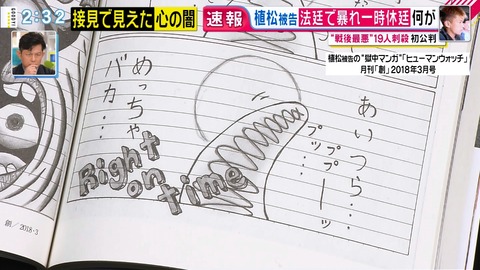 2:32
接見で見えた心の闇
速報
植松被告 法廷で暴れ一時休廷 何が
"戦後最悪"19人刺殺 初公判
植松被告の"獄中マンガ"「ヒューマンウォッチ」
月刊「創」2018年3月号
あいつら…
プップーーッ
めっちゃ
バカ…
Right
on time
創/2018・3